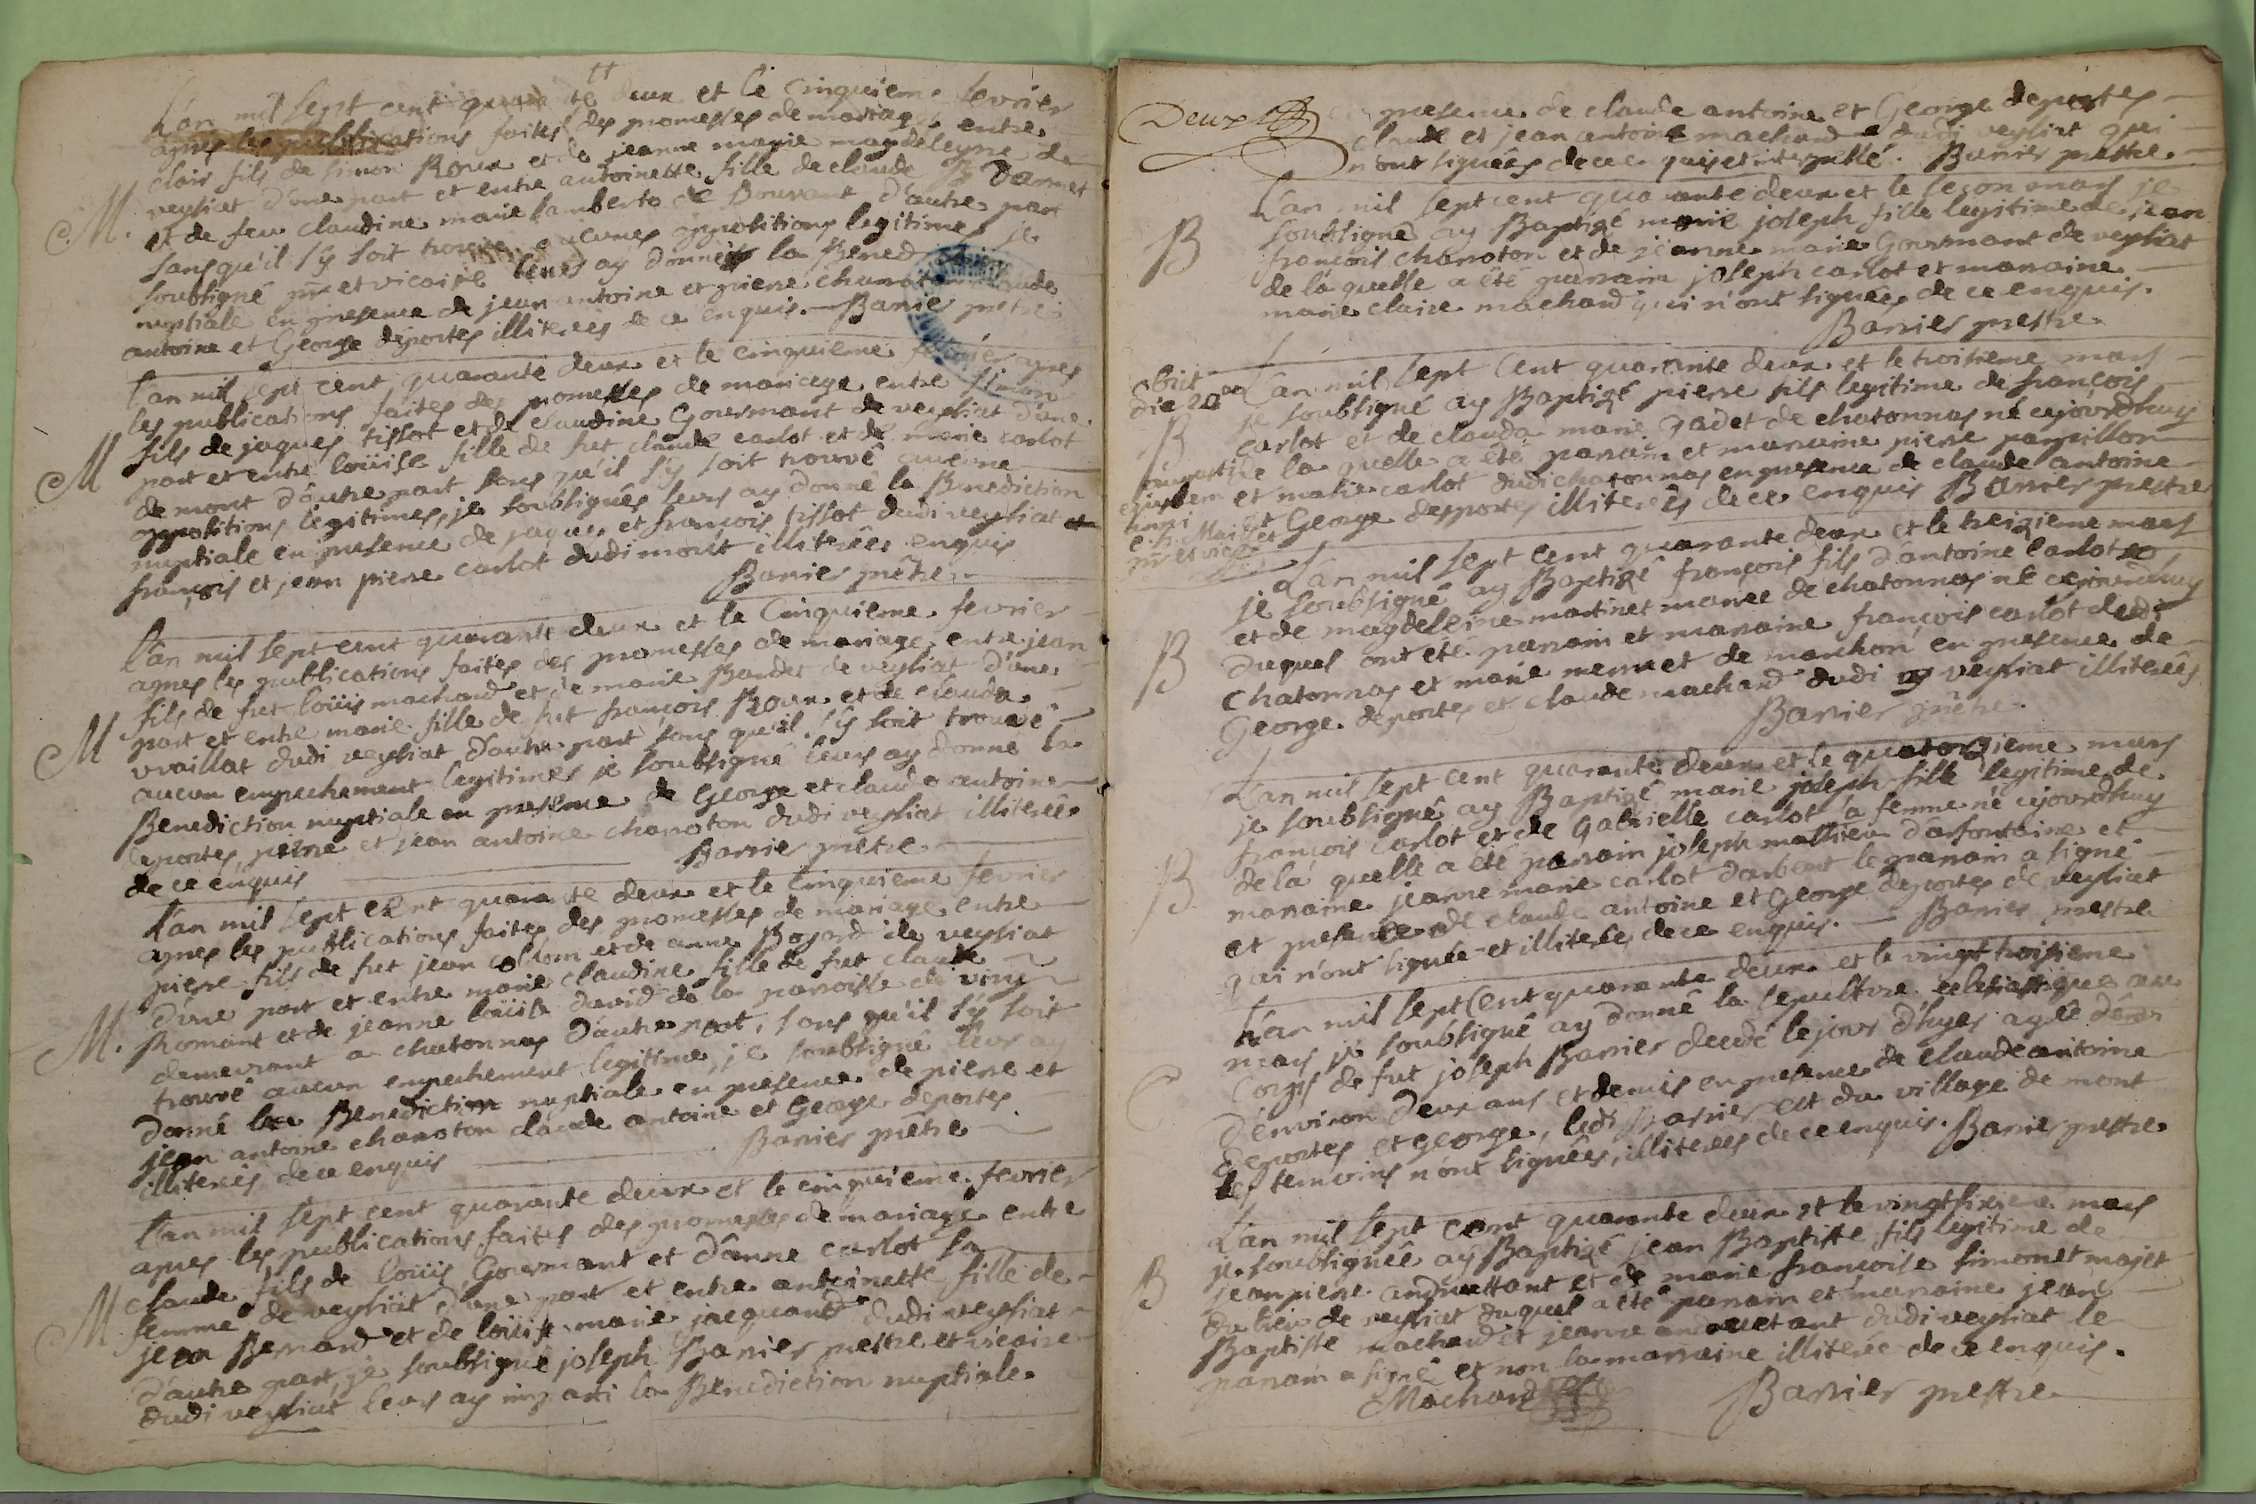 L'an mil sept cent quarante deux et le cinquieme fevrier
apres les publications faites des promesses de mariage entre
clair fils de simon Roux et de jeanne marie magdeleyne de
M. veyliat d'une part et entre antoinette fille de claude vannet
et de feu claudine marie lamberto de Bouvant d'autre part
sans qu'il s'y soit trouvée aucunes oppositions legitimes je
soubsigné ptre et vicaire leurs ay donné la Benediction
nuptiale en presence de jean antoine et piere charoton claude
antoine et George deportes illiterés de ce enquis. Barier prêtre
L'an mil sept cent quarante deux et le cinquieme fevrier apres
les publications faites des promesses de mariage entre simon
fils de jaques tissot et de claudine Gourmant de veyliat d'une
M part et entre loüise fille de fut claude carlot et de marie carlot
de mont d'autre part sans qu'il s'y soit trouvé aucune
oppositions legitimes, je soubsignés leurs ay donné la Benediction
nuptiale en presence de jaques et françois tissot dudi veyliat et
françois et jean piere carlot dudi mont illiterées enquis
Barier prêtre
L'an mil sept cent quarante deux et le Cinquieme fevrier
apres les publications faites des promesses de mariage entre jean
fils de fut loüis machard et de marie Baudet de veyliat d'une
M part et entre marie fille de fut françois Roux et de claude
vvaillat dudi veyliat d'autre part sans qu'il s'y soit trouvé
aucun empechement legitimes je soubsigné leurs ay donné la
Benediction nuptiale en presence de George et claude antoine
deportes, pierre et jean antoine charoton dudi veyliat illiteré
de ce enquis Barrier prêtre
L'an mil sept cent quarante deux et le cinquieme fevrier
apres les publications faites des promesses de mariage entre
pierre fils de fut jean collom et de anne Bojard de veyliat
d'une part et entre marie claudine fille de fut claude
M. Romant et de jeanne loüise david de la paroisse de viry
demeurant a chatonnas d'autre part, sans qu'il s'y soit
trouvé aucun empechement legitime, je soubsigné leurs ay
donné la Benediction nuptiale en presence de piere et
jean antoine charoton claude antoine et George deportes
illiterés de ce enquis Barier prêtre
L'an mil sept cent quarante deux et le cinquieme fevrier
apres les publications faites des promesses de mariage entre
claude fils de loüis Gourmant et d'anne carlot sa
M. femme de veyliat d'une part et entre antoinette fille de
jean Bernard et de loüise marie jacquand dudi veyliat
d'autre part, je soubsigné joseph Barier prestre et vicaire
dudi veyliat leurs ay imparti la Benediction nuptiale
Deux
en presence de claude antoine et George deportes
claude et jean antoine machard dudi veyliat qui
n'ont signées de ce enquis et interpellé. Barier prestre
L'an mil sept cent quarante deux et le secon mars je
B soubsigné ay Baptizé marie joseph fille legitime de jean
françois charoton et de jeanne marie Gourmant de veyliat
de la quelle a été parrain joseph carlot et maraine
marie claire machard qui n'ont signées de ce enquis.
Barier prestre
obiit
die 20
L'an mil sept cent quarante deux et le troisieme mars
B je soubsigné ay Baptizé pierre fils legitime de françois
carlot et de claude marie Jadet de chatonnas né cejourdhuy
la quelle a été parain et maraine piere papillon
ejusdem
anni
et marie carlot dudi chatonnas en presence de claude antoine
et George desportes illiterés de ce enquis Barier prestre
L'an mil sept cent quarante deux et le treizieme mars
je soubsigné ay Baptizé françois fils d'antoine carlot
et de magdeleine martinet mariée de chatonnas né cejourdhuy
B duquel ont été parain et maraine françois carlot dudi
chatonnas et marie mermet de marchon en presence de
George deportes et claude machard dudi veyliat illiterés
Barier prêtre
L'an mil sept cent quarante deux et le quatorzieme mars
je soubsigné ay Baptizé marie joseph fille legitime de
françois carlot et de Gabrielle carlot sa femme né cejourdhuy
B de la quelle a été parain joseph mathieu d'arfontaine et
maraine jeanne marie carlot d'arbent le parain a signé
et presence de claude antoine et George deportes de veyliat
qui n'ont signée et illiterés de ce enquis. Barier prestre
L'an mil sept cent quarante deux et le vingt troisieme
mars je soubsigné ay donné la sepulture eclesiastique au
C corps de fut joseph Barier decedé le jour d'hyer agée
d'environ deux ans et demis en presence de claude antoine
deportes et George, ledi Barier est du village de mont
les temoins n'ont signées, illiterés de ce enquis. Barier prestre
L'an mil sept cent quarante deux et le vingt sixieme mars
B je soubsignée ay Baptizé jean Baptiste fils legitime de
jean piere andruettant et de marie françoise simonet majet
du lieu de veyliat duquel a été parain et maraine jean
Baptiste machard et jeanne andruetant dudi veyliat le
parain a signé et non la marraine illiterée de ce enquis.
Machard Barier prestre